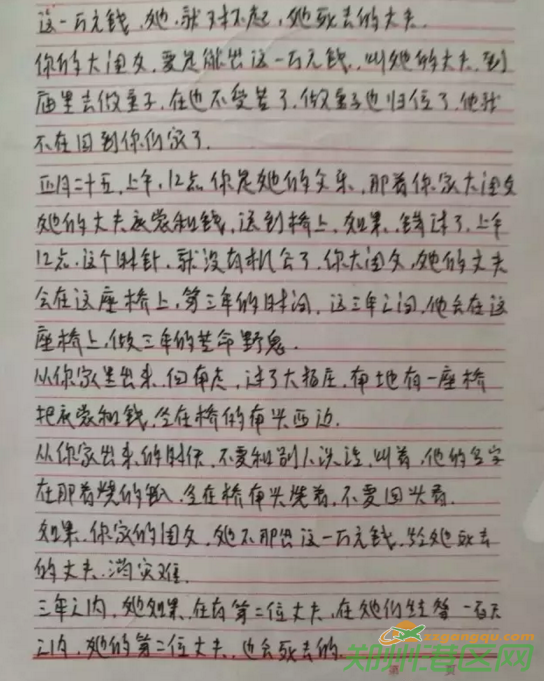 这一万元钱，她，就对不起，她死去的丈夫.
你的大闺女，要是能出这一万元钱，叫她的丈夫，到
庙里去做童子，在也不受苦了，做童子也归位了，他就
不在回到你们家了.
正月二十五，上午，12点，你是她的父亲，那着你家大闺女
她的丈夫衣裳和钱，送到桥上，如果，错过了，上午
12点，这个时针，就没有机会了，你大闺女，她的丈夫
会在这座桥上，等三年的时间，这三年之间，他会在这
座桥上，做三年的苦命野鬼.
从你家里出来，向南走，过了大指庄，南地有一座桥
把衣裳和钱，全在桥的南头西边.
从你家出来的时候，不要和别人说话，叫着，他的名字
在那着烧的，全在桥南头烧着，不要回头看.
如果，你家的闺女，她不那出这一万元钱，给她死去
的丈夫，消灾难.
三年之内，她如果，在有第二位丈夫，在她们结婚一百天
之内，她的第二位丈夫，也会死去的.
zzgangqu.com
郑州港区网
第 页